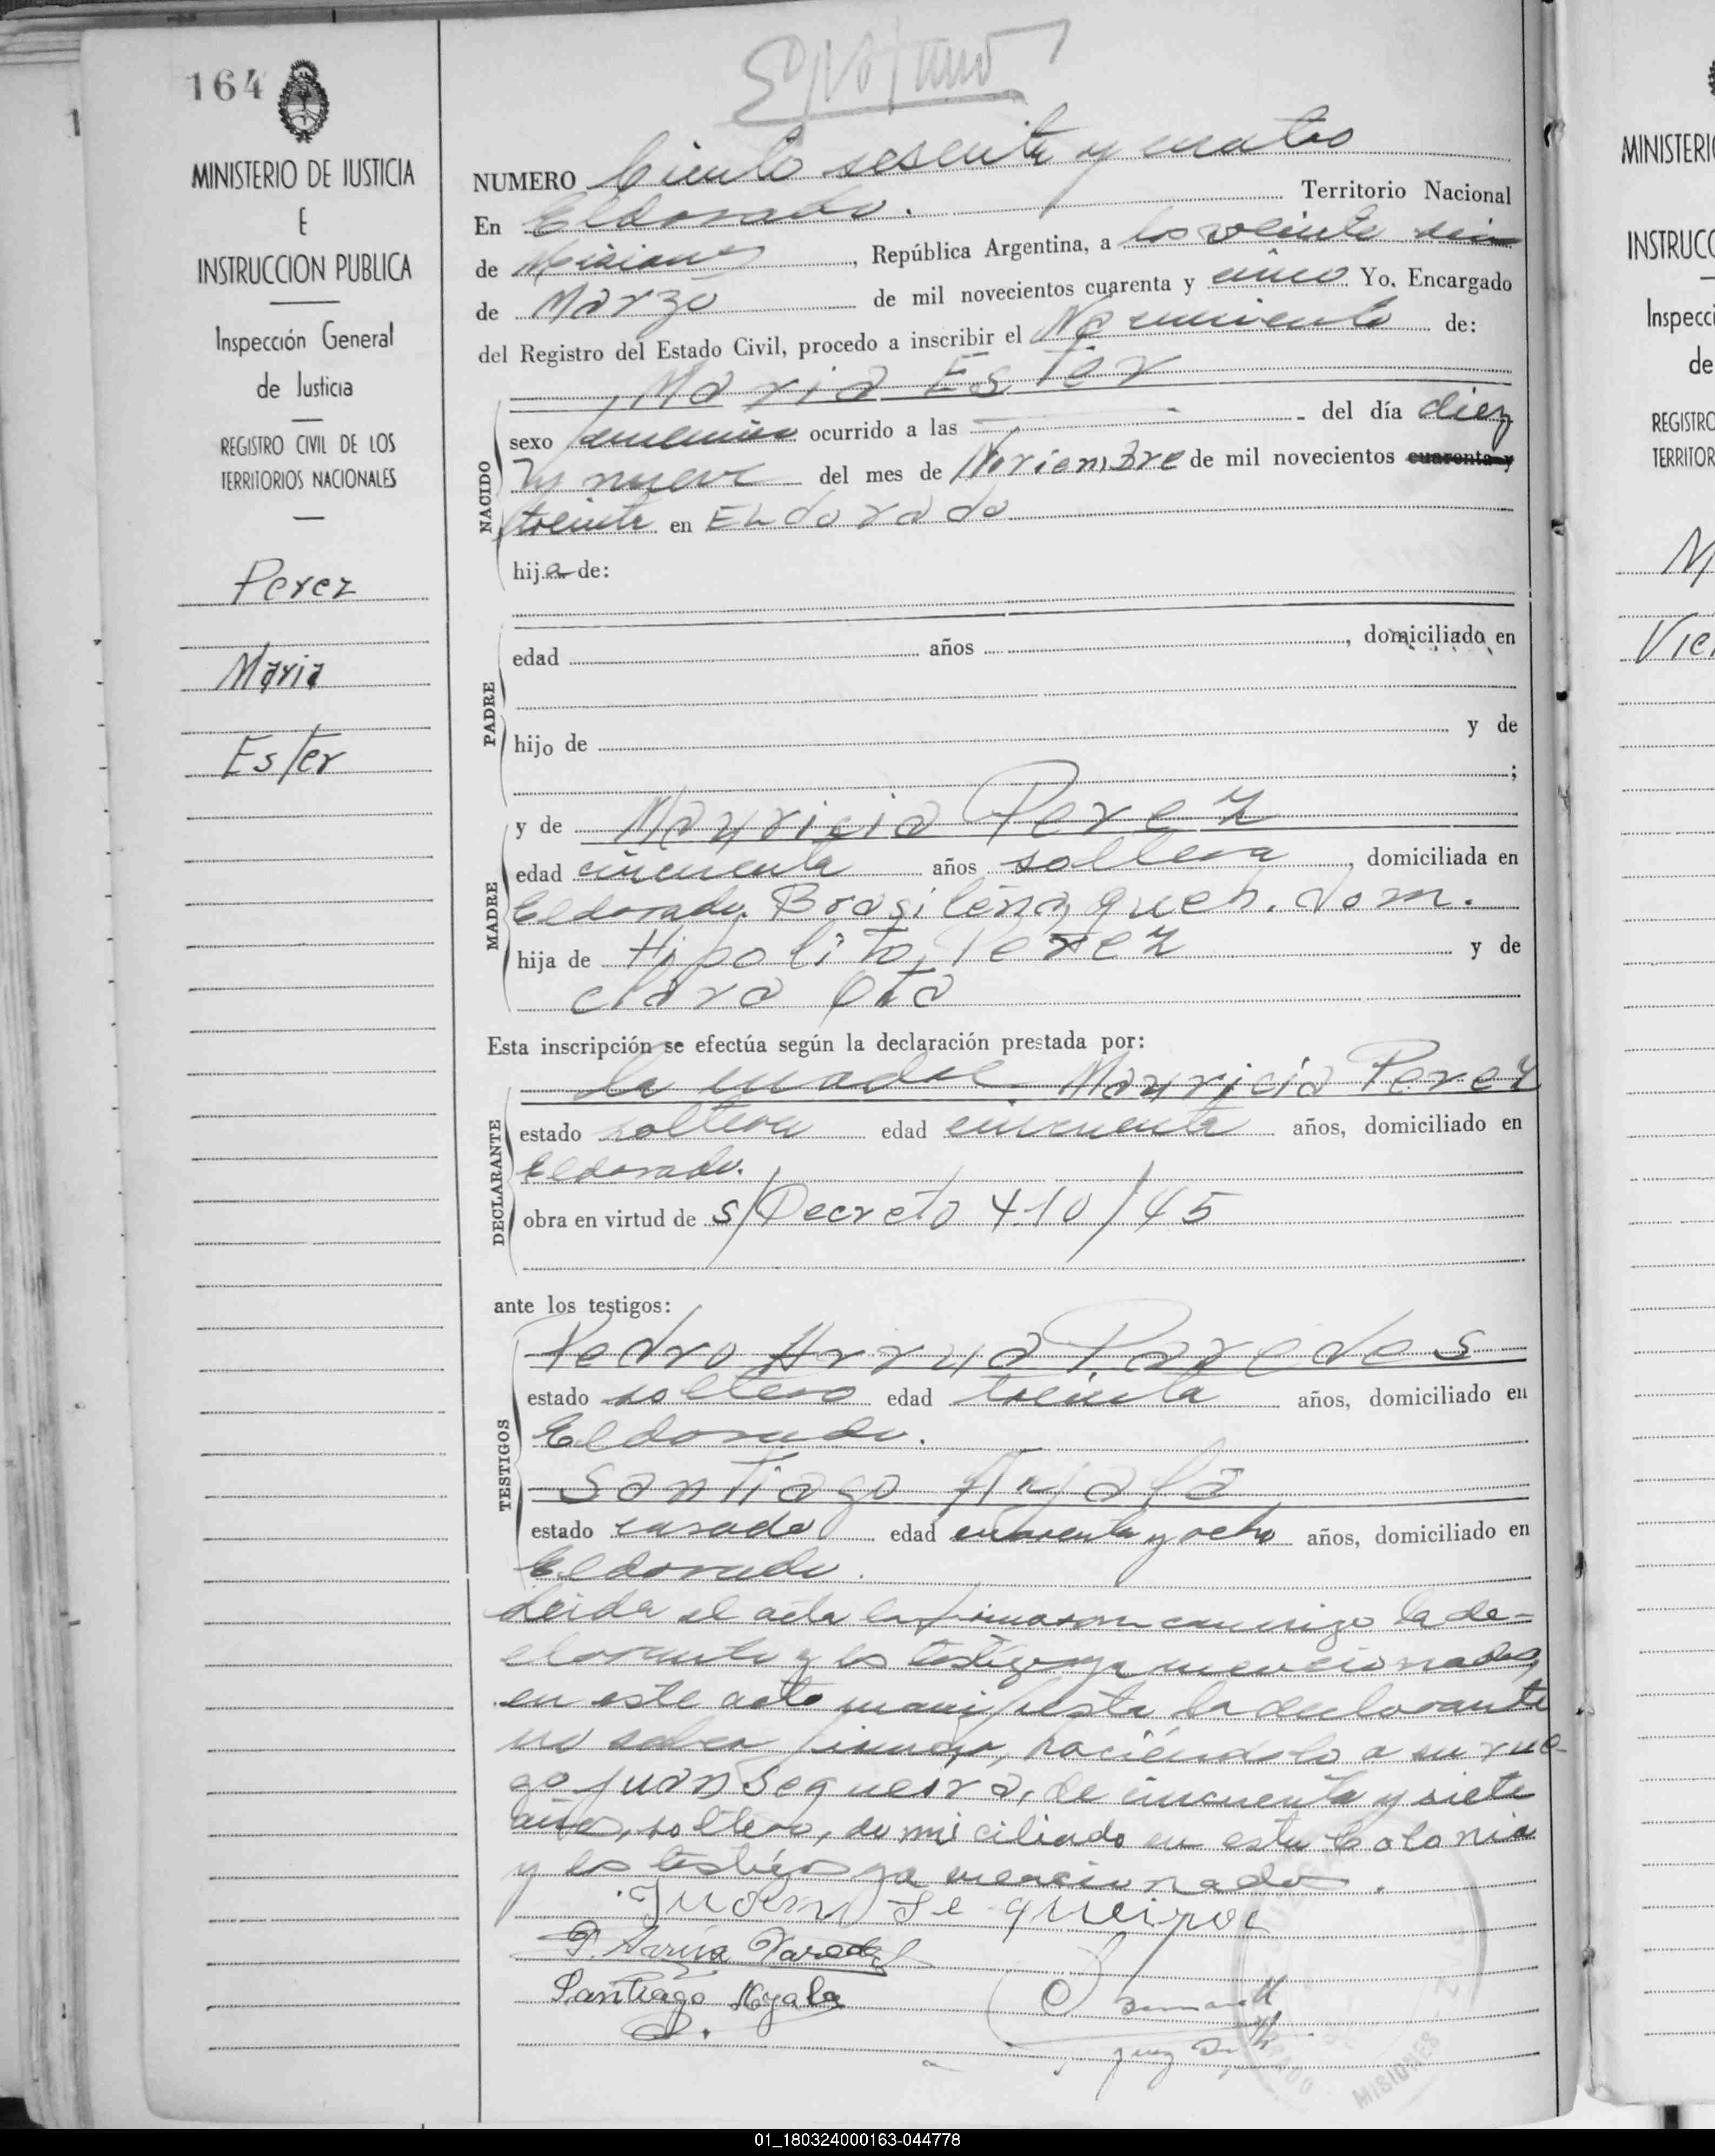 164
MINISTERIO DE JUSTICIA
E
INSTRUCCION PUBLICA
Inspección General
de Justicia
REGISTRO CIVIL DE LOS
TERRITORIOS NACIONALES
Perez
Maria
Ester
NUMERO Ciento sesenta y cuatro
En Eldorado. Territorio Nacional
de Misiones, República Argentina, a los veinte
de Marzo de mil novecientos cuarenta y cinco Yo, Encargado
del Registro del Estado Civil, procedo a inscribir el Nacimiento de:
Maria Ester
NACIDO
sexo femenino ocurrido a las - del día diez
y nueve del mes de Noviembre de mil novecientos cuarenta y
treinta en Eldorado
hija de:
PADRE
edad años , domiciliado en
hijo de y de
;
MADRE
y de Mauricia Perez
edad cincuenta años soltera, domiciliada en
Eldorado. Brasileña, queh. dom.
hija de Hipolito Perez y de
clara Oto
Esta inscripción se efectúa según la declaración prestada por:
DECLARANTE
la madre Mauricia Perez
estado soltera edad cincuenta años, domiciliado en
Eldorado.
obra en virtud de s/Decreto 410/45
ante los testigos:
TESTIGOS
Pedro Arrua Paredes
estado soltero edad treinta años, domiciliado en
Eldorado.
Santiago Ayala
estado casado edad cuarenta y ocho años, domiciliado en
Eldorado.
Leida el acta la firmaron conmigo la de-
clarante y los testigos ya mencionados,
en este acto manifiesta la declarante
no saber firmar, haciéndolo a su rue-
go Juan Sequeira, de cincuenta y siete
años, soltero, domiciliado en esta Colonia
y los testigos ya mencionados.
Juan Sequeira
P. Arrúa Paredes
Santiago Ayala
MISIONES
MINISTERI
INSTRUCC
Inspecci
de
REGISTRO
TERRITOR
M
Vie
01_180324000163-044778